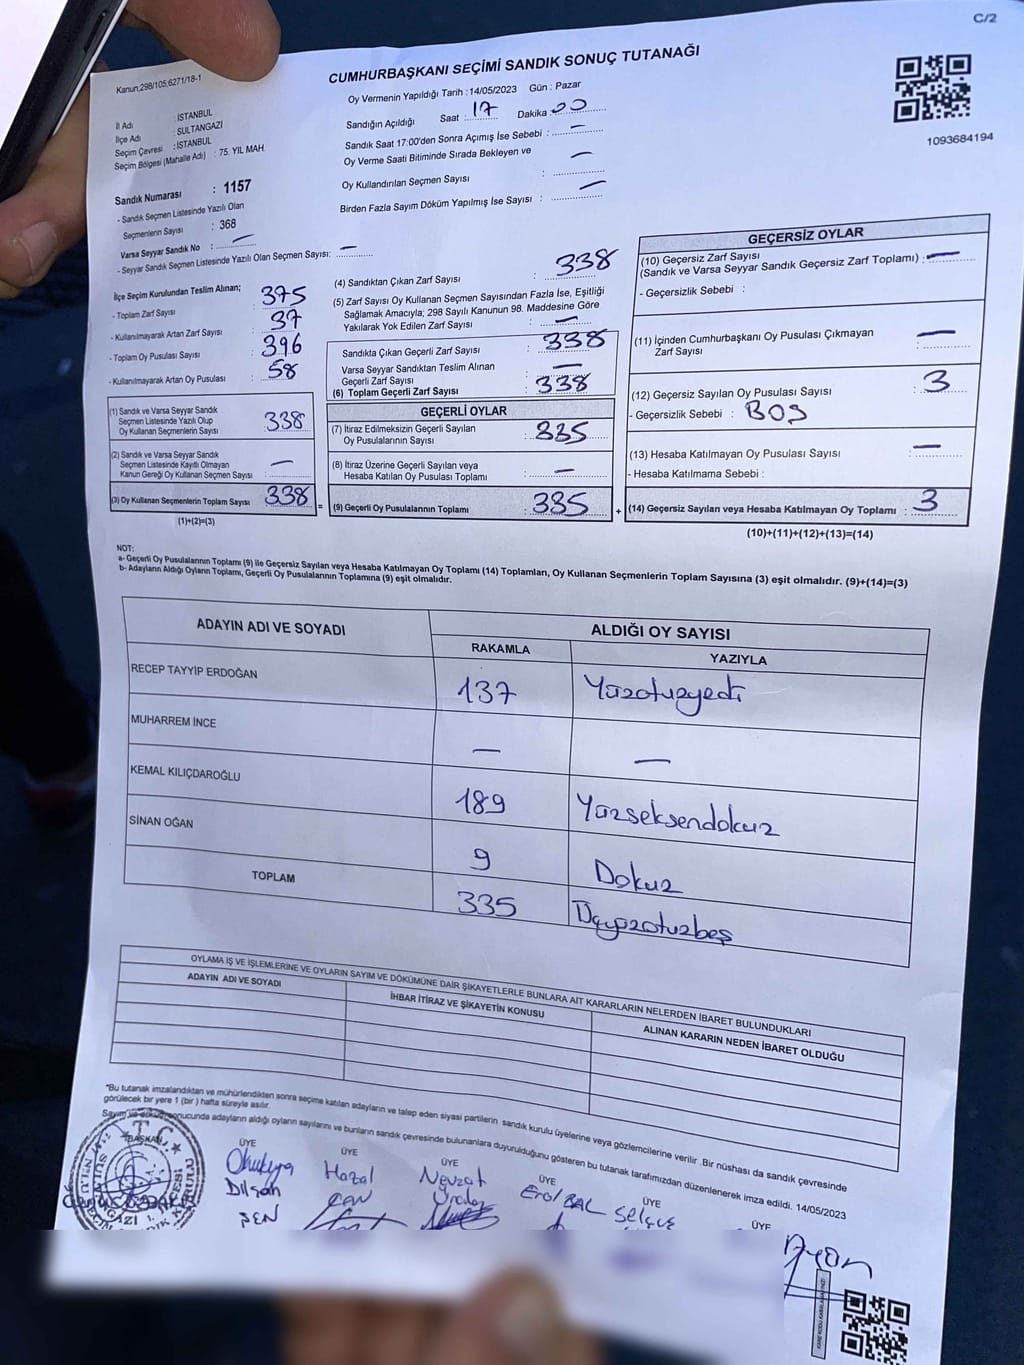 C/2
Kanun,298/105;6271/18-1
CUMHURBAŞKANI SEÇİMİ SANDIK SONUÇ TUTANAĞI
Oy Vermenin Yapıldığı Tarih : 14/05/2023 Gün : Pazar
İl Adı : İSTANBUL
İlçe Adı : SULTANGAZİ
Seçim Çevresi : İSTANBUL
Seçim Bölgesi (Mahalle Adı) : 75. YIL MAH.
Sandığın Açıldığı Saat : 17 Dakika : 00
Sandık Saat 17:00'den Sonra Açımış İse Sebebi : —
Oy Verme Saati Bitiminde Sırada Bekleyen ve
Oy Kullandırılan Seçmen Sayısı : —
Birden Fazla Sayım Döküm Yapılmış İse Sayısı : —
1093684194
Sandık Numarası : 1157
- Sandık Seçmen Listesinde Yazılı Olan
Seçmenlerin Sayısı : 368
Varsa Seyyar Sandık No : —
- Seyyar Sandık Seçmen Listesinde Yazılı Olan Seçmen Sayısı: —
İlçe Seçim Kurulundan Teslim Alınan;
- Toplam Zarf Sayısı : 375
- Kullanılmayarak Artan Zarf Sayısı : 37
- Toplam Oy Pusulası Sayısı : 396
- Kullanılmayarak Artan Oy Pusulası : 58
(1) Sandık ve Varsa Seyyar Sandık
Seçmen Listesinde Yazılı Olup
Oy Kullanan Seçmenlerin Sayısı : 338
(2) Sandık ve Varsa Seyyar Sandık
Seçmen Listesinde Kayıtlı Olmayan
Kanun Gereği Oy Kullanan Seçmen Sayısı : —
(3) Oy Kullanan Seçmenlerin Toplam Sayısı 338
(1)+(2)=(3)
(4) Sandıktan Çıkan Zarf Sayısı : 338
(5) Zarf Sayısı Oy Kullanan Seçmen Sayısından Fazla İse, Eşitliği
Sağlamak Amacıyla; 298 Sayılı Kanunun 98. Maddesine Göre
Yakılarak Yok Edilen Zarf Sayısı : —
Sandıkta Çıkan Geçerli Zarf Sayısı : 338
Varsa Seyyar Sandıktan Teslim Alınan
Geçerli Zarf Sayısı : —
(6) Toplam Geçerli Zarf Sayısı : 338
GEÇERLİ OYLAR
(7) İtiraz Edilmeksizin Geçerli Sayılan
Oy Pusulalarının Sayısı : 335
(8) İtiraz Üzerine Geçerli Sayılan veya
Hesaba Katılan Oy Pusulası Toplamı : —
= (9) Geçerli Oy Pusulalarının Toplamı : 335
GEÇERSİZ OYLAR
(10) Geçersiz Zarf Sayısı
(Sandık ve Varsa Seyyar Sandık Geçersiz Zarf Toplamı) : —
- Geçersizlik Sebebi :
(11) İçinden Cumhurbaşkanı Oy Pusulası Çıkmayan
Zarf Sayısı : —
(12) Geçersiz Sayılan Oy Pusulası Sayısı : 3
- Geçersizlik Sebebi : BOŞ
(13) Hesaba Katılmayan Oy Pusulası Sayısı : —
- Hesaba Katılmama Sebebi :
+ (14) Geçersiz Sayılan veya Hesaba Katılmayan Oy Toplamı : 3
(10)+(11)+(12)+(13)=(14)
NOT:
a- Geçerli Oy Pusulalarının Toplamı (9) ile Geçersiz Sayılan veya Hesaba Katılmayan Oy Toplamı (14) Toplamları, Oy Kullanan Seçmenlerin Toplam Sayısına (3) eşit olmalıdır. (9)+(14)=(3)
b- Adayların Aldığı Oyların Toplamı, Geçerli Oy Pusulalarının Toplamına (9) eşit olmalıdır.
ADAYIN ADI VE SOYADI ALDIĞI OY SAYISI
RAKAMLA YAZIYLA
RECEP TAYYİP ERDOĞAN 137 Yüzotuzyedi
MUHARREM İNCE — —
KEMAL KILIÇDAROĞLU 189 Yüzseksendokuz
SİNAN OĞAN 9 Dokuz
TOPLAM 335 Üçyüzotuzbeş
OYLAMA İŞ VE İŞLEMLERİNE VE OYLARIN SAYIM VE DÖKÜMÜNE DAİR ŞİKAYETLERLE BUNLARA AİT KARARLARIN NELERDEN İBARET BULUNDUKLARI
ADAYIN ADI VE SOYADI İHBAR İTİRAZ VE ŞİKAYETİN KONUSU ALINAN KARARIN NEDEN İBARET OLDUĞU
*Bu tutanak imzalandıktan ve mühürlendikten sonra seçime katılan adayların ve talep eden siyasi partilerin sandık kurulu üyelerine veya gözlemcilerine verilir .Bir nüshası da sandık çevresinde
görülecek bir yere 1 (bir ) hafta süreyle asılır.
sonucunda adayların aldığı oyların sayılarını ve bunların sandık çevresinde bulunanlara duyurulduğunu gösteren bu tutanak tarafımızdan düzenlenerek imza edildi. 14/05/2023
BAŞKAN ÜYE ÜYE ÜYE ÜYE ÜYE ÜYE
T.C.
Dilşan
ŞEN
Hazal
CAN
Nevzat
Erol BAL